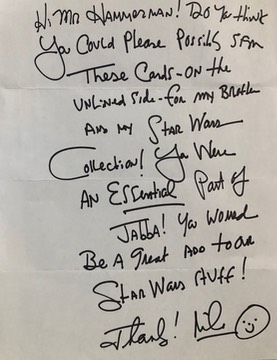 Hi Mr Hammerman! Do You think
You Could Please Possibly Sign
These Cards-on the
unlined side-for my Brother
And my Star Wars
Collection! You Were
AN Essential Part of
Jabba! You Would
Be A Great Add to our
Star Wars Stuff!
Thanks! Mike